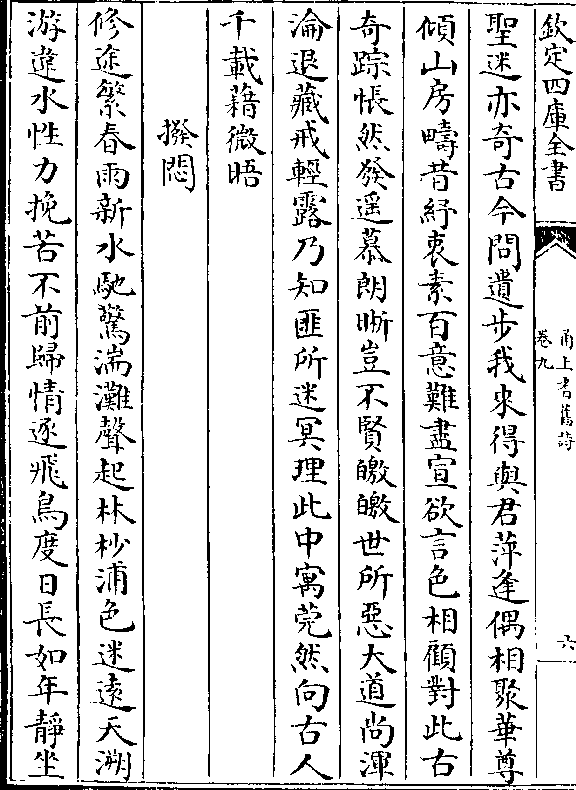 欽定四庫全書
甬上耆舊詩
卷九
六
聖迷亦奇古今問遺步我來得與君萍逢偶相聚華尊
傾山房疇昔紓衷素百意難盡宣欲言色相顧對此右
奇踪悵然發遥慕朗晰豈不賢皦皦世所惡大道尚渾
淪退藏戒輕露乃知匪所迷冥理此中寓莞然向古人
千載藉微晤
撥悶
修途繁春雨新水馳驚湍灘聲起林杪浦色迷遠天溯
游違水性力挽苦不前歸情逐飛鳥度日長如年靜坐